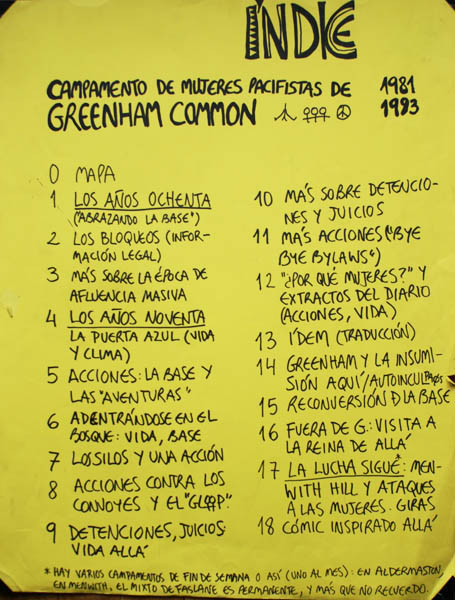 ÍNDICE
CAMPAMENTO DE MUJERES PACIFISTAS DE 1981
GREENHAM COMMON 1993
0 MAPA
1 LOS AÑOS OCHENTA
("ABRAZANDO LA BASE")
2 LOS BLOQUEOS (INFOR-
MACIÓN LEGAL)
3 MÁS SOBRE LA ÉPOCA DE
AFLUENCIA MASIVA
4 LOS AÑOS NOVENTA
LA PUERTA AZUL (VIDA
Y CLIMA)
5 ACCIONES: LA BASE Y
LAS "AVENTURAS"
6 ADENTRÁNDOSE EN EL
BOSQUE: VIDA, BASE
7 LOS SILOS Y UNA ACCIÓN
8 ACCIONES CONTRA LOS
CONVOYES Y EL
9 DETENCIONES, JUICIOS:
VIDA ALLÁ
10 MÁS SOBRE DETENCIO-
NES Y JUICIOS
11 MÁS ACCIONES ("BYE
BYE BYLAWS")
12 "¿POR QUÉ MUJERES?" Y
EXTRACTOS DEL DIARIO
(ACCIONES, VIDA)
13 ÍDEM (TRADUCCIÓN)
14 GREENHAM Y LA INSUMI-
SIÓN AQUÍ/
15 RECONVERSIÓN D LA BASE
16 FUERA DE G.: VISITA A
LA REINA DE ALLÁ
17 LA LUCHA SIGUE*: MEN-
WITH HILL Y ATAQUES
A LAS MUJERES. GIRAS
18 CÓMIC INSPIRADO ALLÁ
* HAY VARIOS CAMPAMENTOS DE FIN DE SEMANA O ASÍ (UNO AL MES): EN ALDERMASTON,
EN MENWITH, EL MIXTO DE FASLANE ES PERMANENTE, Y MÁS QUE NO RECUERDO.